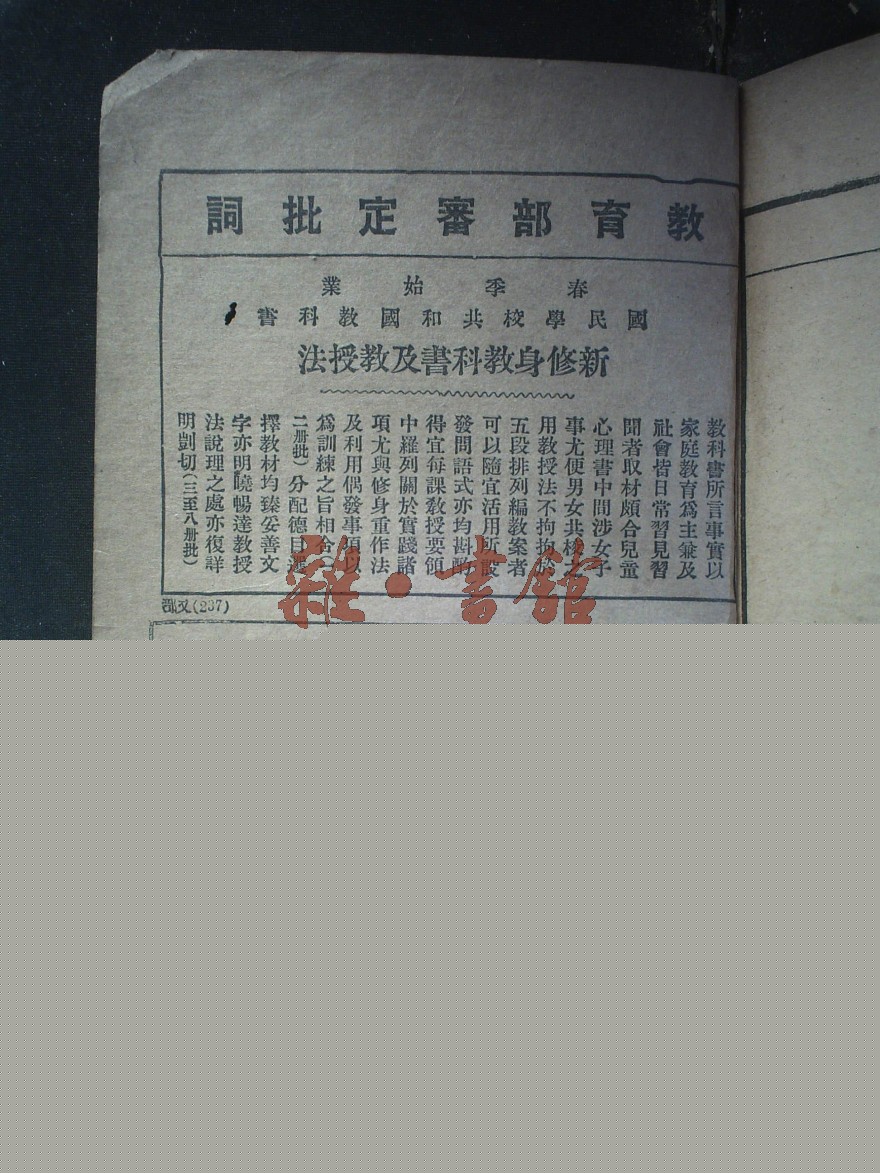 教育部審定批詞
春季始業
國民學校共和國教科書
新修身教科書及教授法
教科書所言事實以
家庭教育爲主兼及
社會皆日常習見習
聞者取材頗合兒童
心理書中間涉女子
事尤便男女共校之
用教授法不拘拘於
五段排列編教案者
可以隨宜活用所設
發問語式亦均斟酌
得宜每課教授要領
中羅列關於實踐諸
項尤與修身重作法
及利用偶發事項以
爲訓練之旨相合(一
二册批)分配德目選
擇教材均臻妥善文
字亦明曉暢達教授
法說理之處亦復詳
明剴切(三至八册批)
(237)
雜·書館